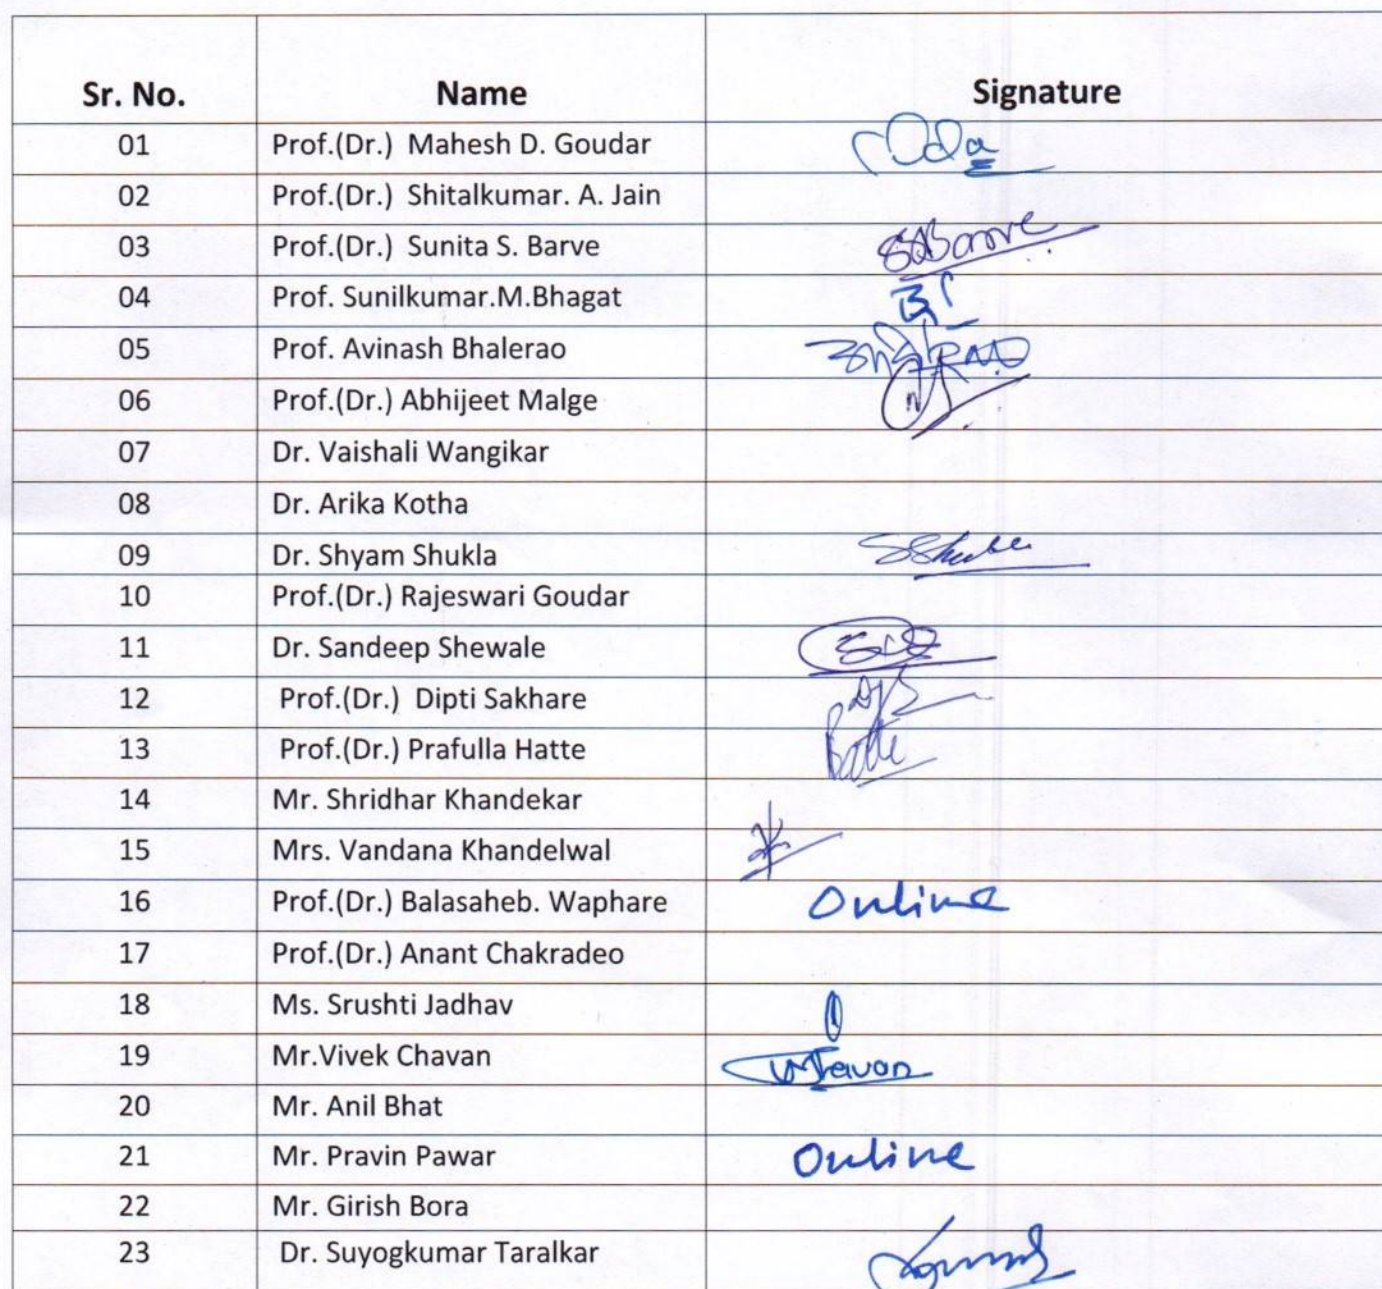 Sr. No. Name Signature
01 Prof.(Dr.) Mahesh D. Goudar
02 Prof.(Dr.) Shitalkumar. A. Jain
03 Prof.(Dr.) Sunita S. Barve SSBarve
04 Prof. Sunilkumar.M.Bhagat
05 Prof. Avinash Bhalerao
06 Prof.(Dr.) Abhijeet Malge
07 Dr. Vaishali Wangikar
08 Dr. Arika Kotha
09 Dr. Shyam Shukla
10 Prof.(Dr.) Rajeswari Goudar
11 Dr. Sandeep Shewale
12 Prof.(Dr.) Dipti Sakhare
13 Prof.(Dr.) Prafulla Hatte
14 Mr. Shridhar Khandekar
15 Mrs. Vandana Khandelwal
16 Prof.(Dr.) Balasaheb. Waphare Online
17 Prof.(Dr.) Anant Chakradeo
18 Ms. Srushti Jadhav
19 Mr.Vivek Chavan
20 Mr. Anil Bhat
21 Mr. Pravin Pawar Online
22 Mr. Girish Bora
23 Dr. Suyogkumar Taralkar